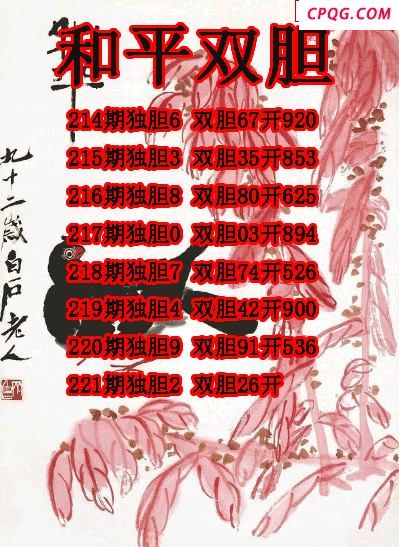 CPQG.COM
和平
和平双胆
214期独胆6 双胆67开920
215期独胆3 双胆35开853
216期独胆8 双胆80开625
217期独胆0 双胆03开894
218期独胆7 双胆74开526
219期独胆4 双胆42开900
220期独胆9 双胆91开536
221期独胆2 双胆26开
九十二岁白石老人